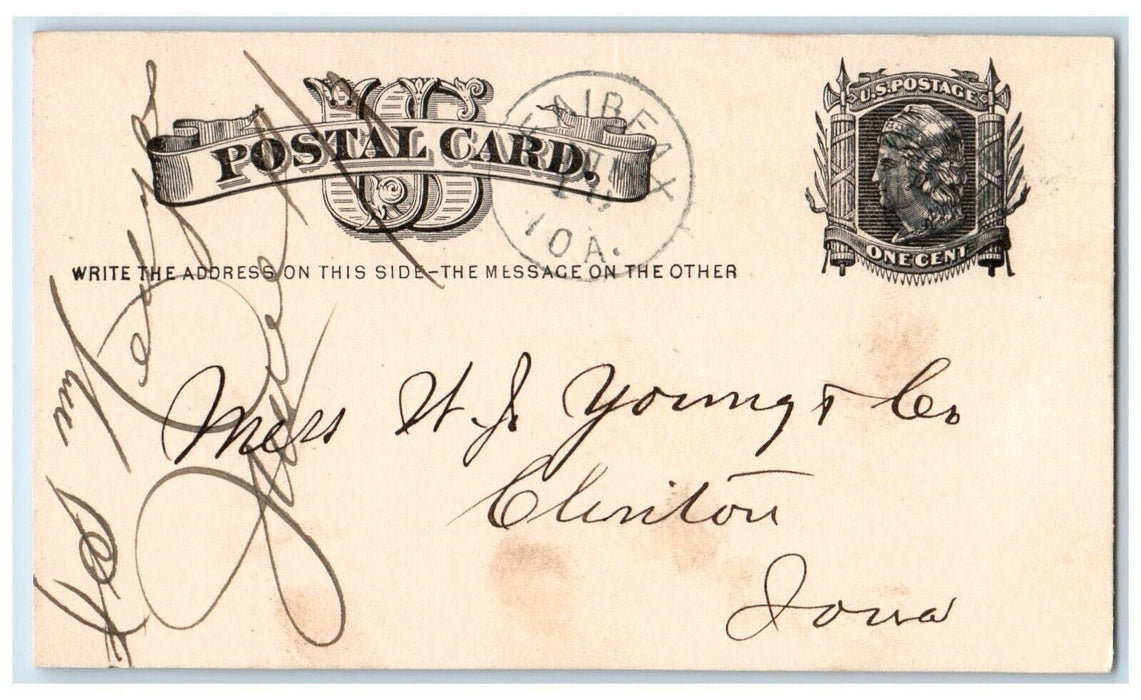 US
POSTAL CARD.
WRITE THE ADDRESS ON THIS SIDE–THE MESSAGE ON THE OTHER
FAIRFAX
IOA.
U.S. POSTAGE
ONE CENT
Mess W. J. Young & Co
Clinton
Iowa